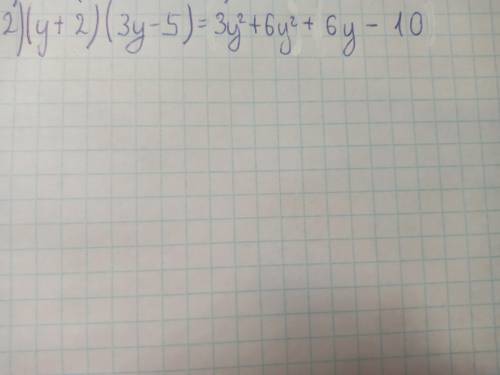 2) (y + 2) (3y - 5) = 3y² + 6y² + 6y - 10